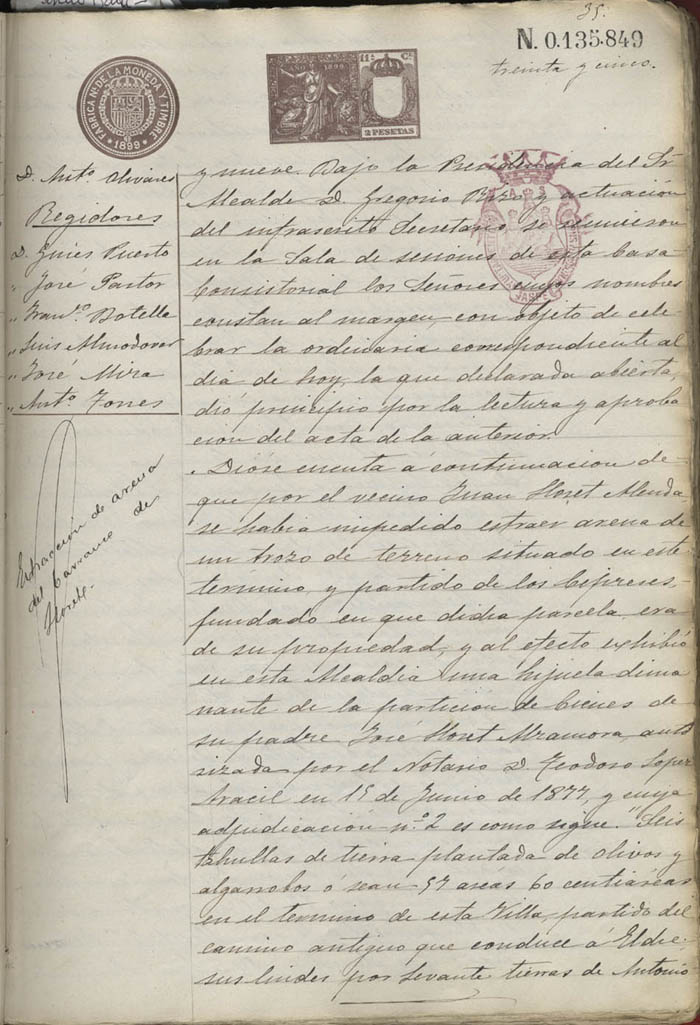 35.
N. 0.135.849
treinta y cinco.
FABRICA NAL DE LA MONEDA Y TIMBRE
1899
11ª Cª
AÑO 1899
2 PESETAS
D. Antº Olivares
Regidores
D. Ginés Puerto
" José Pastor
" Franº Botella
" Luis Almodovar
" José Mira
" Antº Torres
Extracción de arena
del barranco de
Horet.
y nueve. Bajo la Presidencia del Sr
Alcalde D. Gregorio y actuación
del infrascrito Secretario, se reunieron
en la Sala de sesiones de esta Casa
Consistorial los Señores cuyos nombres
constan al margen, con objeto de cele
brar la ordinaria correspondiente al
dia de hoy, la que declarada abierta,
dió principio por la lectura y aproba
cion del acta de la anterior.
Dióse cuenta á continuacion de
que por el vecino Juan Horet Alenda
se habia impedido estraer arena de
un trozo de terreno situado en este
termino, y partido de los Cipreses,
fundado en que dicha parcela era
de su propiedad, y al efecto exhibió
en esta Alcaldia una hijuela dima
nante de la particion de bienes de
su padre José Horet Miramora, auto
rizada por el Notario D. Teodoro Lopez
Aracil en 15 de Junio de 1877, y cuya
adjudicación nº 2 es como sigue. "Seis
tahullas de tierra plantada de olivos y
algarrobos ó sean 57 areas 60 centiáreas
en el termino de esta Villa, partido del
camino antiguo que conduce á Elche,
sus lindes por Levante tierras de Antonio